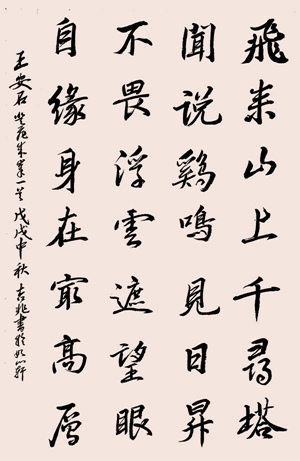 飛来山上千尋塔
聞説鷄鳴見日昇
不畏浮雲遮望眼
自緣身在冣高層
王安石登飛来峯一首 戊戌中秋 吉兆書於軒